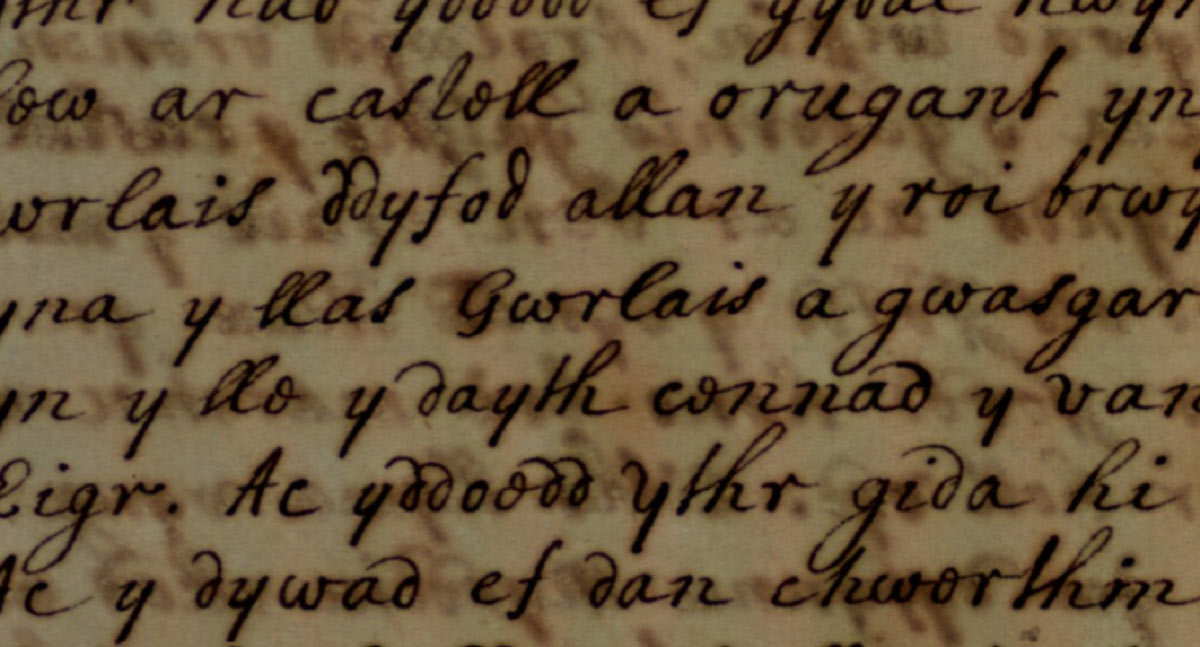 ar castell a orugant yn
wrlais ddyfod allan y roi brwy
yna y llas Gwrlais a gwasgar
yn y lle y dayth cennad y van
Eigr. Ac ydddoedd Ythr gida hi
Ac y dywad ef dan chwerthin